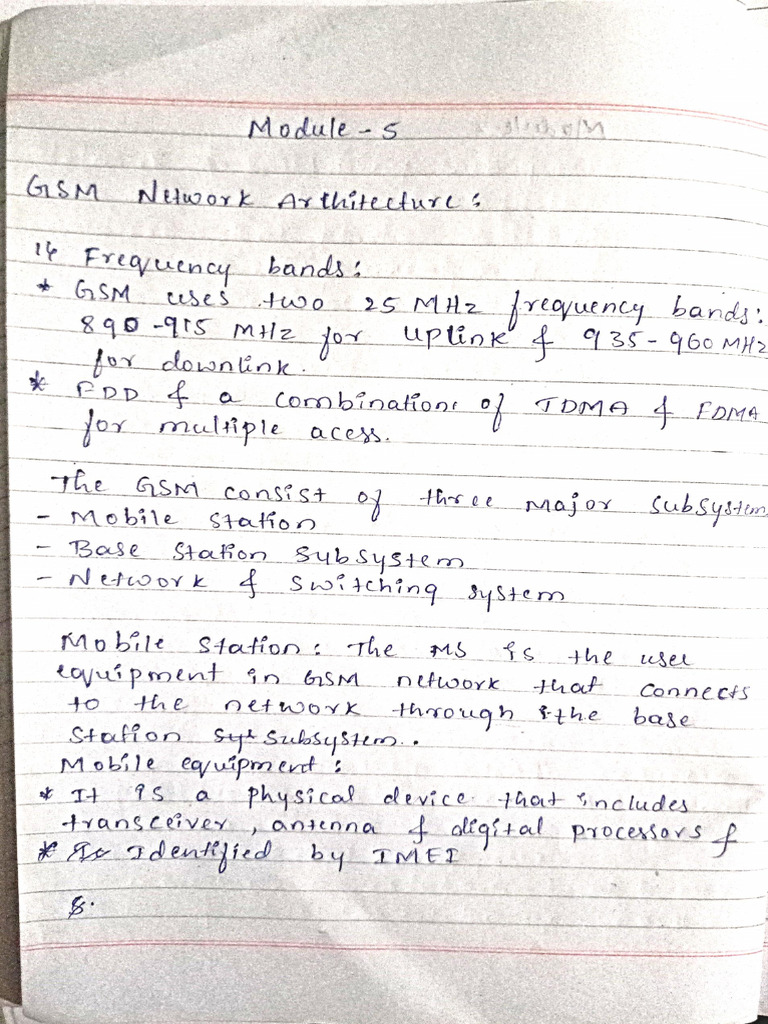 Module - 5
GSM Network Arthitecture:
1} Frequency bands:
* GSM uses two 25 MHz frequency bands:
890-915 MHz for uplink & 935-960 MHz
for downlink.
* FDD & a combination of TDMA & FDMA
for multiple acess.
The GSM consist of three major subsystem
- Mobile station
- Base station subsystem
- Network & switching system
Mobile station: The MS is the user
equipment in GSM network that connects
to the network through the base
station subsystem..
Mobile equipment:
* It is a physical device that includes
transceiver, antenna & digital processors &
* Identified by IMEI